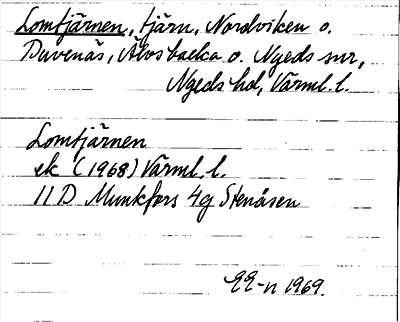 Lomtjärnen, tjärn, Nordviken o.
Duvenäs, Älvsbacka o. Nyeds snr,
Nyeds hd, Värml. l.
Lomtjärnen
ek (1968) Värml. l.
11 D Munkfors 4g Stenåsen
EE-n 1969.